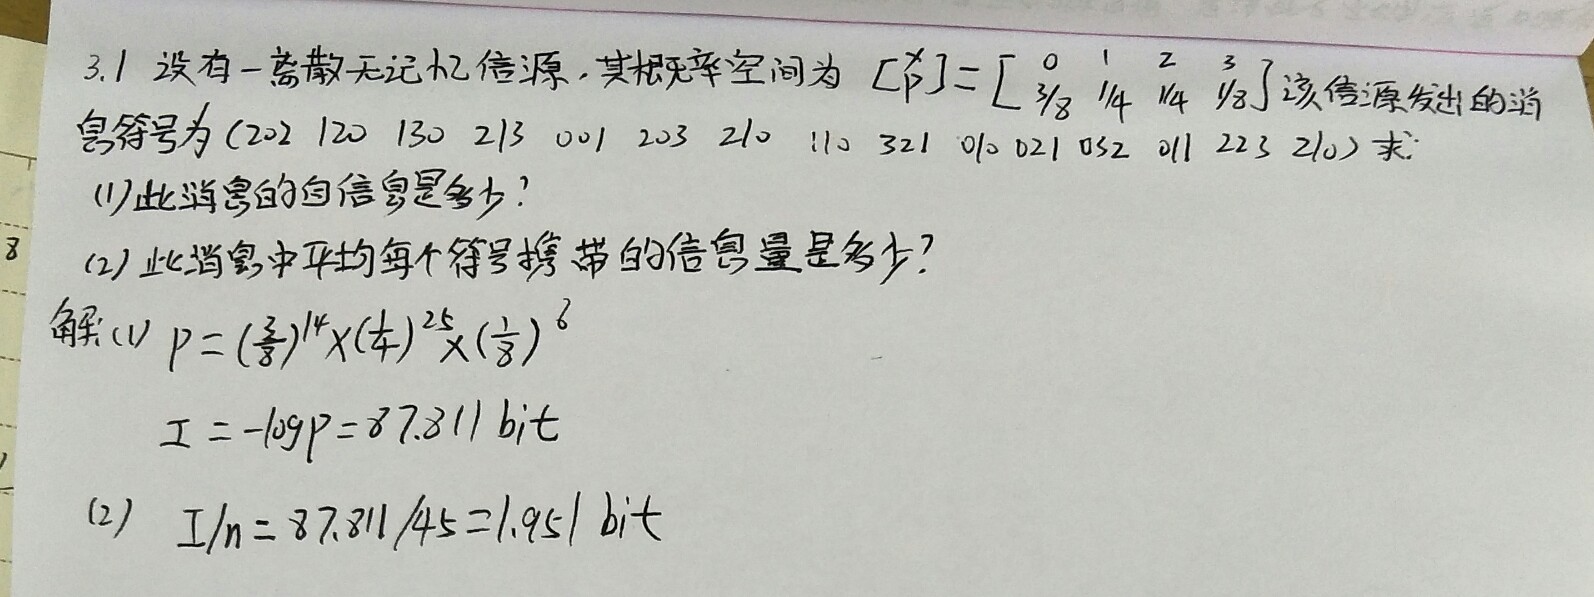 3.1 设有一离散无记忆信源，其概率空间为 [X P]=[0 1 2 3 3/8 1/4 1/4 1/8]该信源发出的消
息符号为(202 120 130 213 001 203 210 110 321 010 021 032 011 223 210)求:
(1)此消息的自信息是多少?
(2)此消息中平均每个符号携带的信息量是多少?
解:(1) P=(3/8)^14×(1/4)^25×(1/8)^6
I=-logP=87.811 bit
(2) I/n=87.811/45=1.951 bit
8